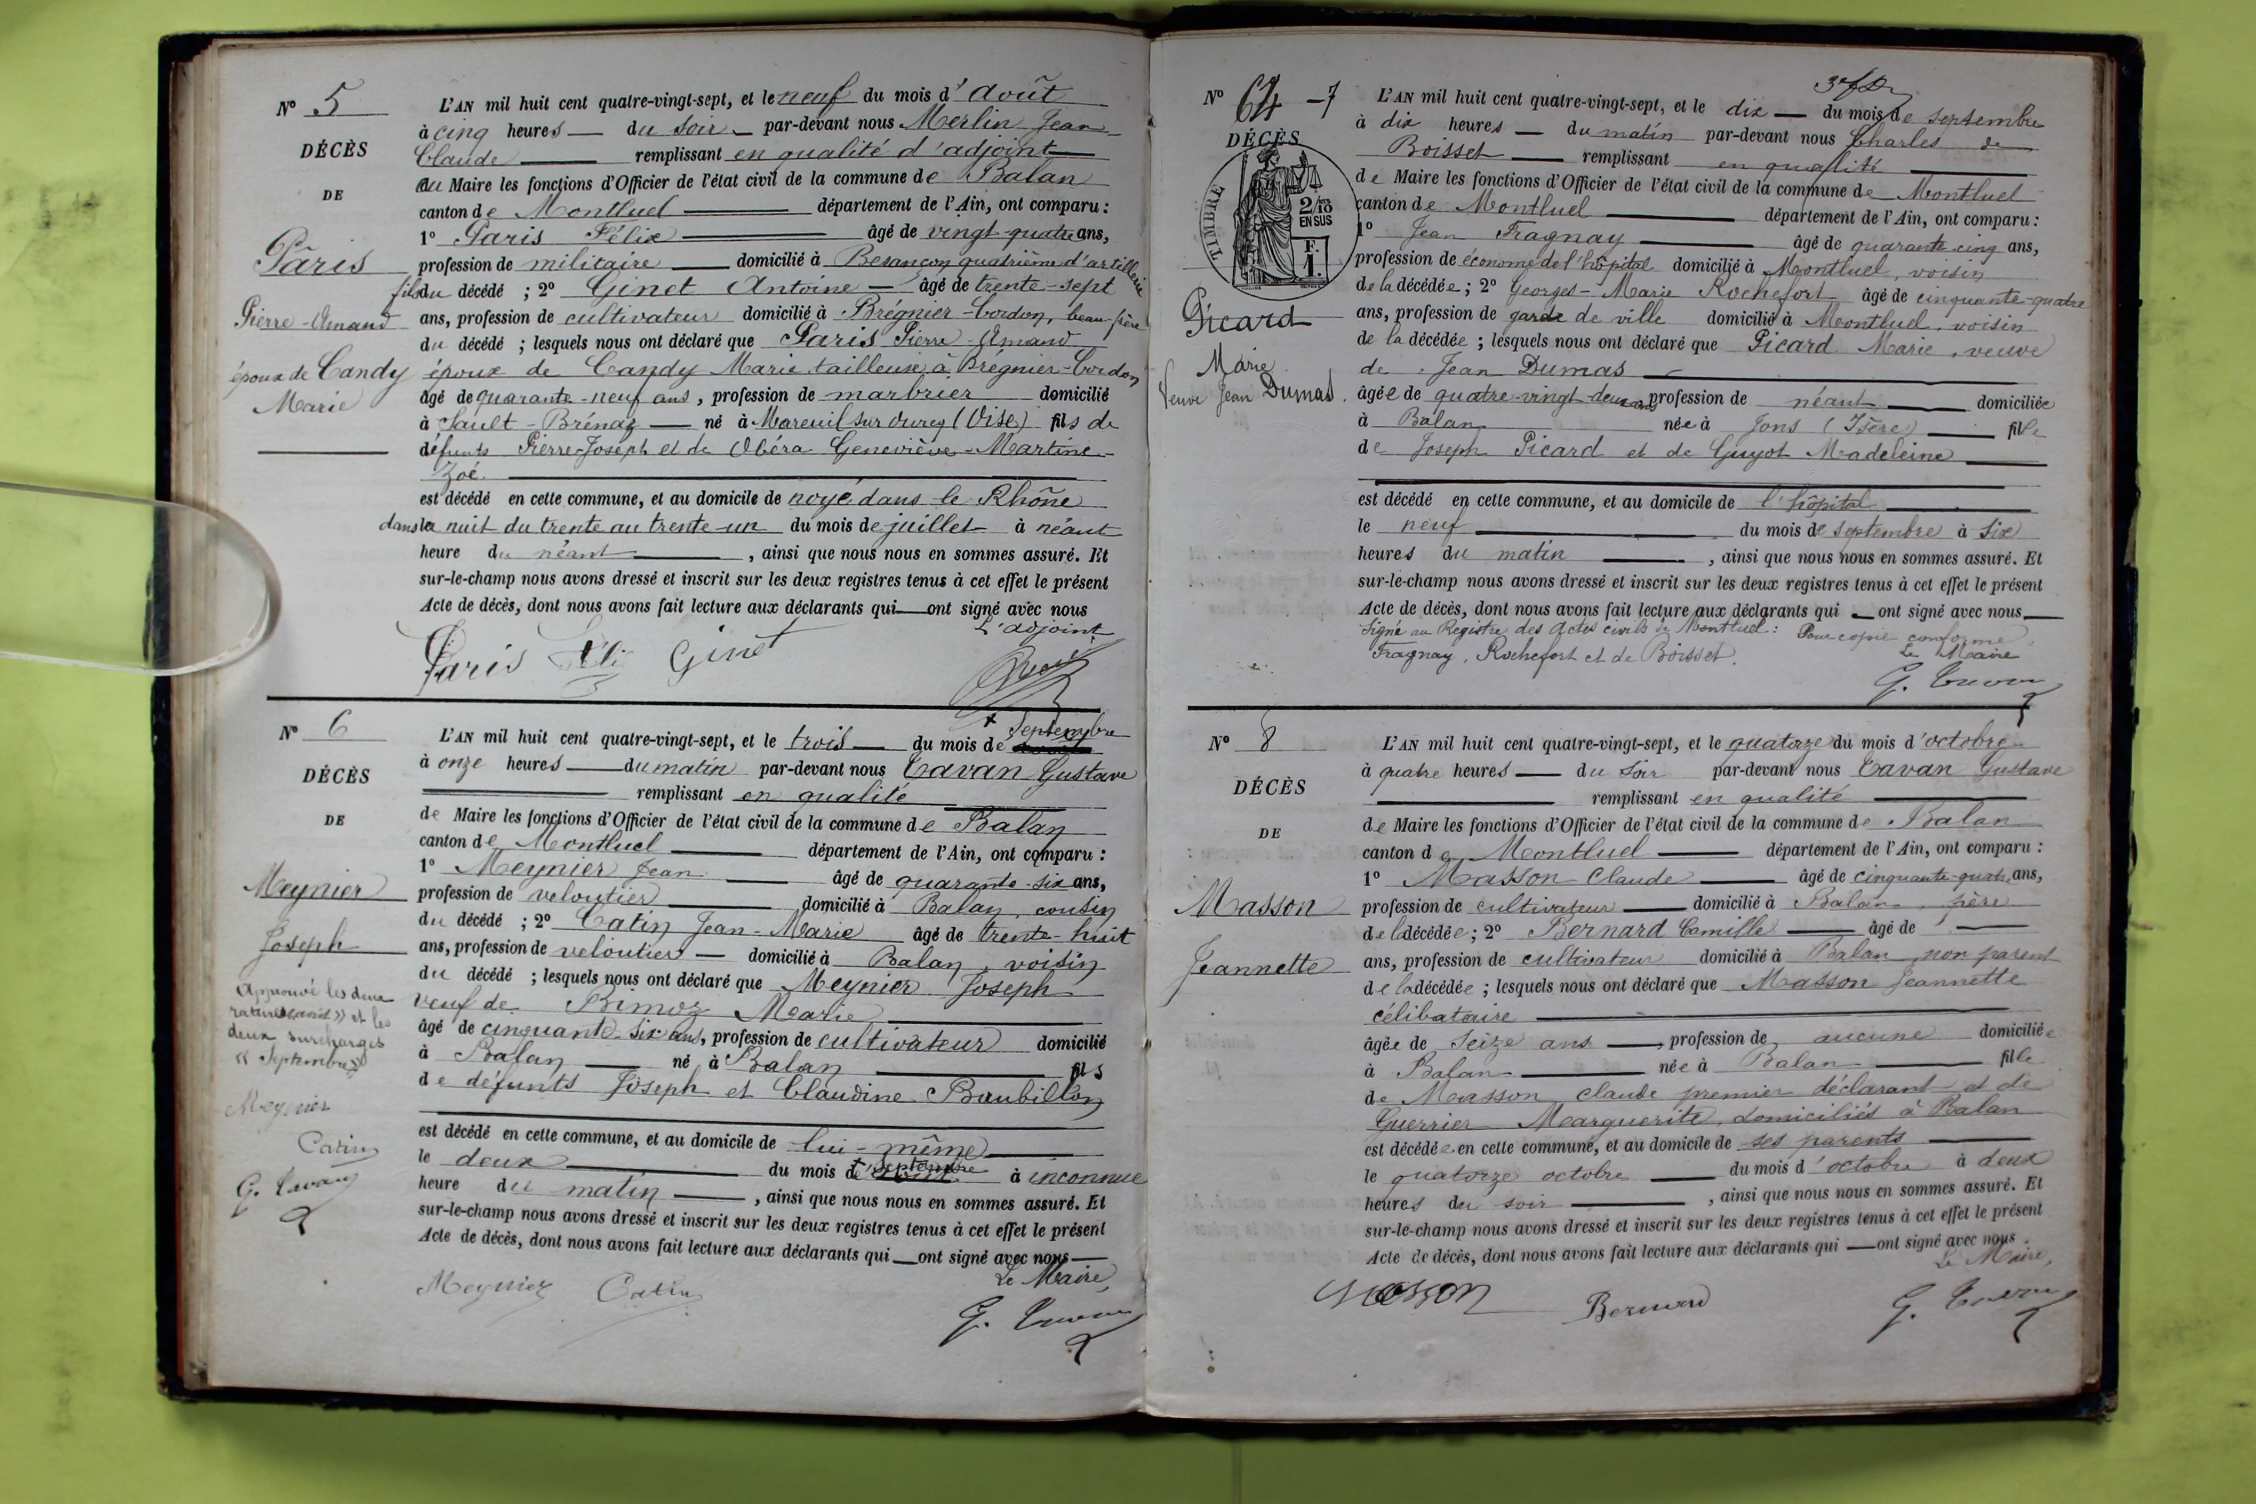 N° 5
DÉCÈS
DE
Pâris
Pierre-Amand
époux de Candy
Marie
L'AN mil huit cent quatre-vingt-sept, et le neuf du mois d'Août
à cinq heures du soir par-devant nous Merlin Jean
Claude remplissant en qualité d'adjoint
au Maire les fonctions d'Officier de l'état civil de la commune de Balan
canton de Montluel département de l'Ain, ont comparu :
1° Paris Félix âgé de vingt-quatre ans,
profession de militaire domicilié à Besançon quatrième d'artillerie
fils du décédé ; 2° Ginet Antoine âgé de trente-sept
ans, profession de cultivateur domicilié à Brégnier-Cordon, beau-frère
du décédé ; lesquels nous ont déclaré que Paris Pierre-Amand
époux de Candy Marie tailleuse à Brégnier-Cordon
âgé de quarante-neuf ans, profession de marbrier domicilié
à Sault-Brénaz né à Mareuil sur Ourcq (Oise) fils de
défunts Pierre-Joseph et de Obéra Geneviève-Martine-
Zoé
est décédé en cette commune, et au domicile de noyé dans le Rhône
dans la nuit du trente au trente-un du mois de juillet à néant
heure du néant, ainsi que nous nous en sommes assuré. Et
sur-le-champ nous avons dressé et inscrit sur les deux registres tenus à cet effet le présent
Acte de décès, dont nous avons fait lecture aux déclarants qui ont signé avec nous
L'adjoint
Paris Ginet
N° 6
DÉCÈS
DE
Meynier
Joseph
Approuvé les deux
ratures et les
deux surcharges
« Septembre »
Meynier
Catin
G. Tavan
L'AN mil huit cent quatre-vingt-sept, et le trois du mois de Septembre
à onze heures du matin par-devant nous Tavan Gustave
remplissant en qualité
de Maire les fonctions d'Officier de l'état civil de la commune de Balan
canton de Montluel département de l'Ain, ont comparu :
1° Meynier Jean âgé de quarante-six ans,
profession de veloutier domicilié à Balan, cousin
du décédé ; 2° Catin Jean-Marie âgé de trente-huit
ans, profession de veloutier domicilié à Balan, voisin
du décédé ; lesquels nous ont déclaré que Meynier Joseph
veuf de Bimoz Marie
âgé de cinquante-six ans, profession de cultivateur domicilié
à Balan né à Balan fils
de défunts Joseph et Claudine Baubillon
est décédé en cette commune, et au domicile de lui-même
le deux du mois de septembre à inconnue
heure du matin, ainsi que nous nous en sommes assuré. Et
sur-le-champ nous avons dressé et inscrit sur les deux registres tenus à cet effet le présent
Acte de décès, dont nous avons fait lecture aux déclarants qui ont signé avec nous
Le Maire,
Meynier Catin
G. Tavan
N° 64 - 7
DÉCÈS
TIMBRE
2/10 EN SUS
F. 1.
Picard
Marie
Veuve Jean Dumas.
L'AN mil huit cent quatre-vingt-sept, et le dix du mois de septembre
à dix heures du matin par-devant nous Charles de
Boisset remplissant en qualité
de Maire les fonctions d'Officier de l'état civil de la commune de Montluel
canton de Montluel département de l'Ain, ont comparu :
1° Jean Fragnay âgé de quarante cinq ans,
profession de économe de l'hôpital domicilié à Montluel, voisin
de la décédée ; 2° Georges-Marie Rochefort âgé de cinquante-quatre
ans, profession de garde de ville domicilié à Montluel, voisin
de la décédée ; lesquels nous ont déclaré que Picard Marie, veuve
de Jean Dumas
âgée de quatre-vingt-deux ans profession de néant domiciliée
à Balan née à Jons (Isère) fille
de Joseph Picard et de Guyot Madeleine
est décédé en cette commune, et au domicile de l'hôpital
le neuf du mois de septembre à six
heures du matin, ainsi que nous nous en sommes assuré. Et
sur-le-champ nous avons dressé et inscrit sur les deux registres tenus à cet effet le présent
Acte de décès, dont nous avons fait lecture aux déclarants qui ont signé avec nous
Signé au Registre des actes civils de Montluel : Pour copie conforme
Fragnay, Rochefort et de Boisset. Le Maire
G. Tavan
N° 8
DÉCÈS
DE
Masson
Jeannette
L'AN mil huit cent quatre-vingt-sept, et le quatorze du mois d'octobre
à quatre heures du soir par-devant nous Tavan Gustave
remplissant en qualité
de Maire les fonctions d'Officier de l'état civil de la commune de Balan
canton de Montluel département de l'Ain, ont comparu :
1° Masson Claude âgé de cinquante-quatre ans,
profession de cultivateur domicilié à Balan, père
de la décédée ; 2° Bernard Camille âgé de
ans, profession de cultivateur domicilié à Balan non parent
de la décédée ; lesquels nous ont déclaré que Masson Jeannette
célibataire
âgée de Seize ans, profession de aucune domiciliée
à Balan née à Balan fille
de Masson Claude premier déclarant et de
Guerrier Marguerite, domiciliés à Balan
est décédée en cette commune, et au domicile de ses parents
le quatorze octobre du mois d'octobre à deux
heures du soir, ainsi que nous nous en sommes assuré. Et
sur-le-champ nous avons dressé et inscrit sur les deux registres tenus à cet effet le présent
Acte de décès, dont nous avons fait lecture aux déclarants qui ont signé avec nous
Le Maire,
Masson Bernard G. Tavan